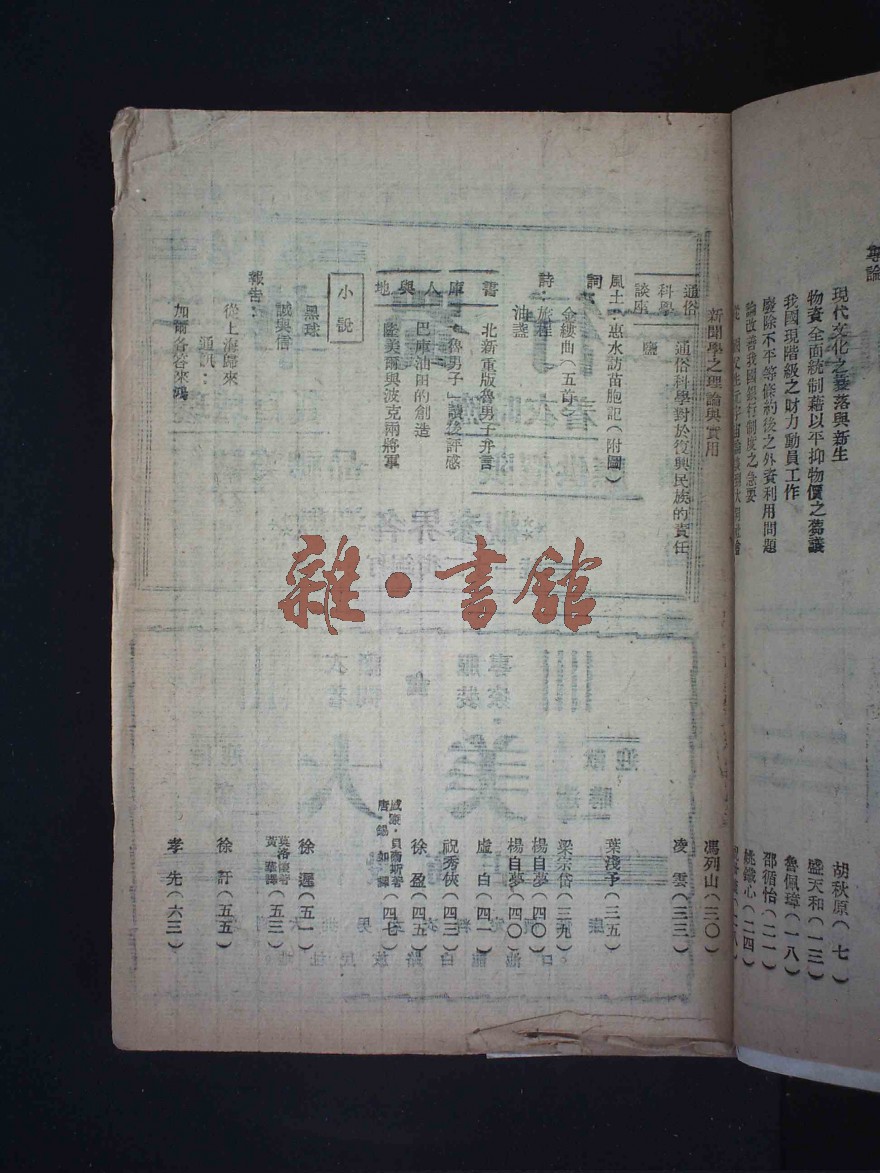 專論
現代文化之衰落與新生 胡秋原(七)
物資全面統制藉以平抑物價之芻議 盛天和(一三)
我國現階級之財力動員工作 魯佩璋(一八)
廢除不平等條約後之外資利用問題 邵循怡(二一)
論改善我國銀行制度之急要 姚鐵心(二四)
新聞學之理論與實用 馮列山(三〇)
通俗科學談座
通俗科學對於復興民族的責任 凌雲(三三)
鹽
風土:惠水訪苗胞記(附圖) 葉淺予(三五)
詞:
金縷曲(五首) 梁宗岱(三九)
詩:旅程 楊自夢(四〇)
油盞 楊自夢(四〇)
書庫
北新重版魯男子弁言 虛白(四一)
「魯男子」讀後評感 祝秀俠(四三)
人與地
巴庫油田的創造 徐盈(四五)
隆美爾與波克兩將軍 威廉·貝爾斯著 唐錫如譯(四七)
小說
黑球 徐遲(五一)
誠與信 莫洛懷著 黃葉譯(五三)
報告:
從上海歸來 徐訏(五五)
通訊:
加爾各答來鴻 孝先(六三)
雜·書館